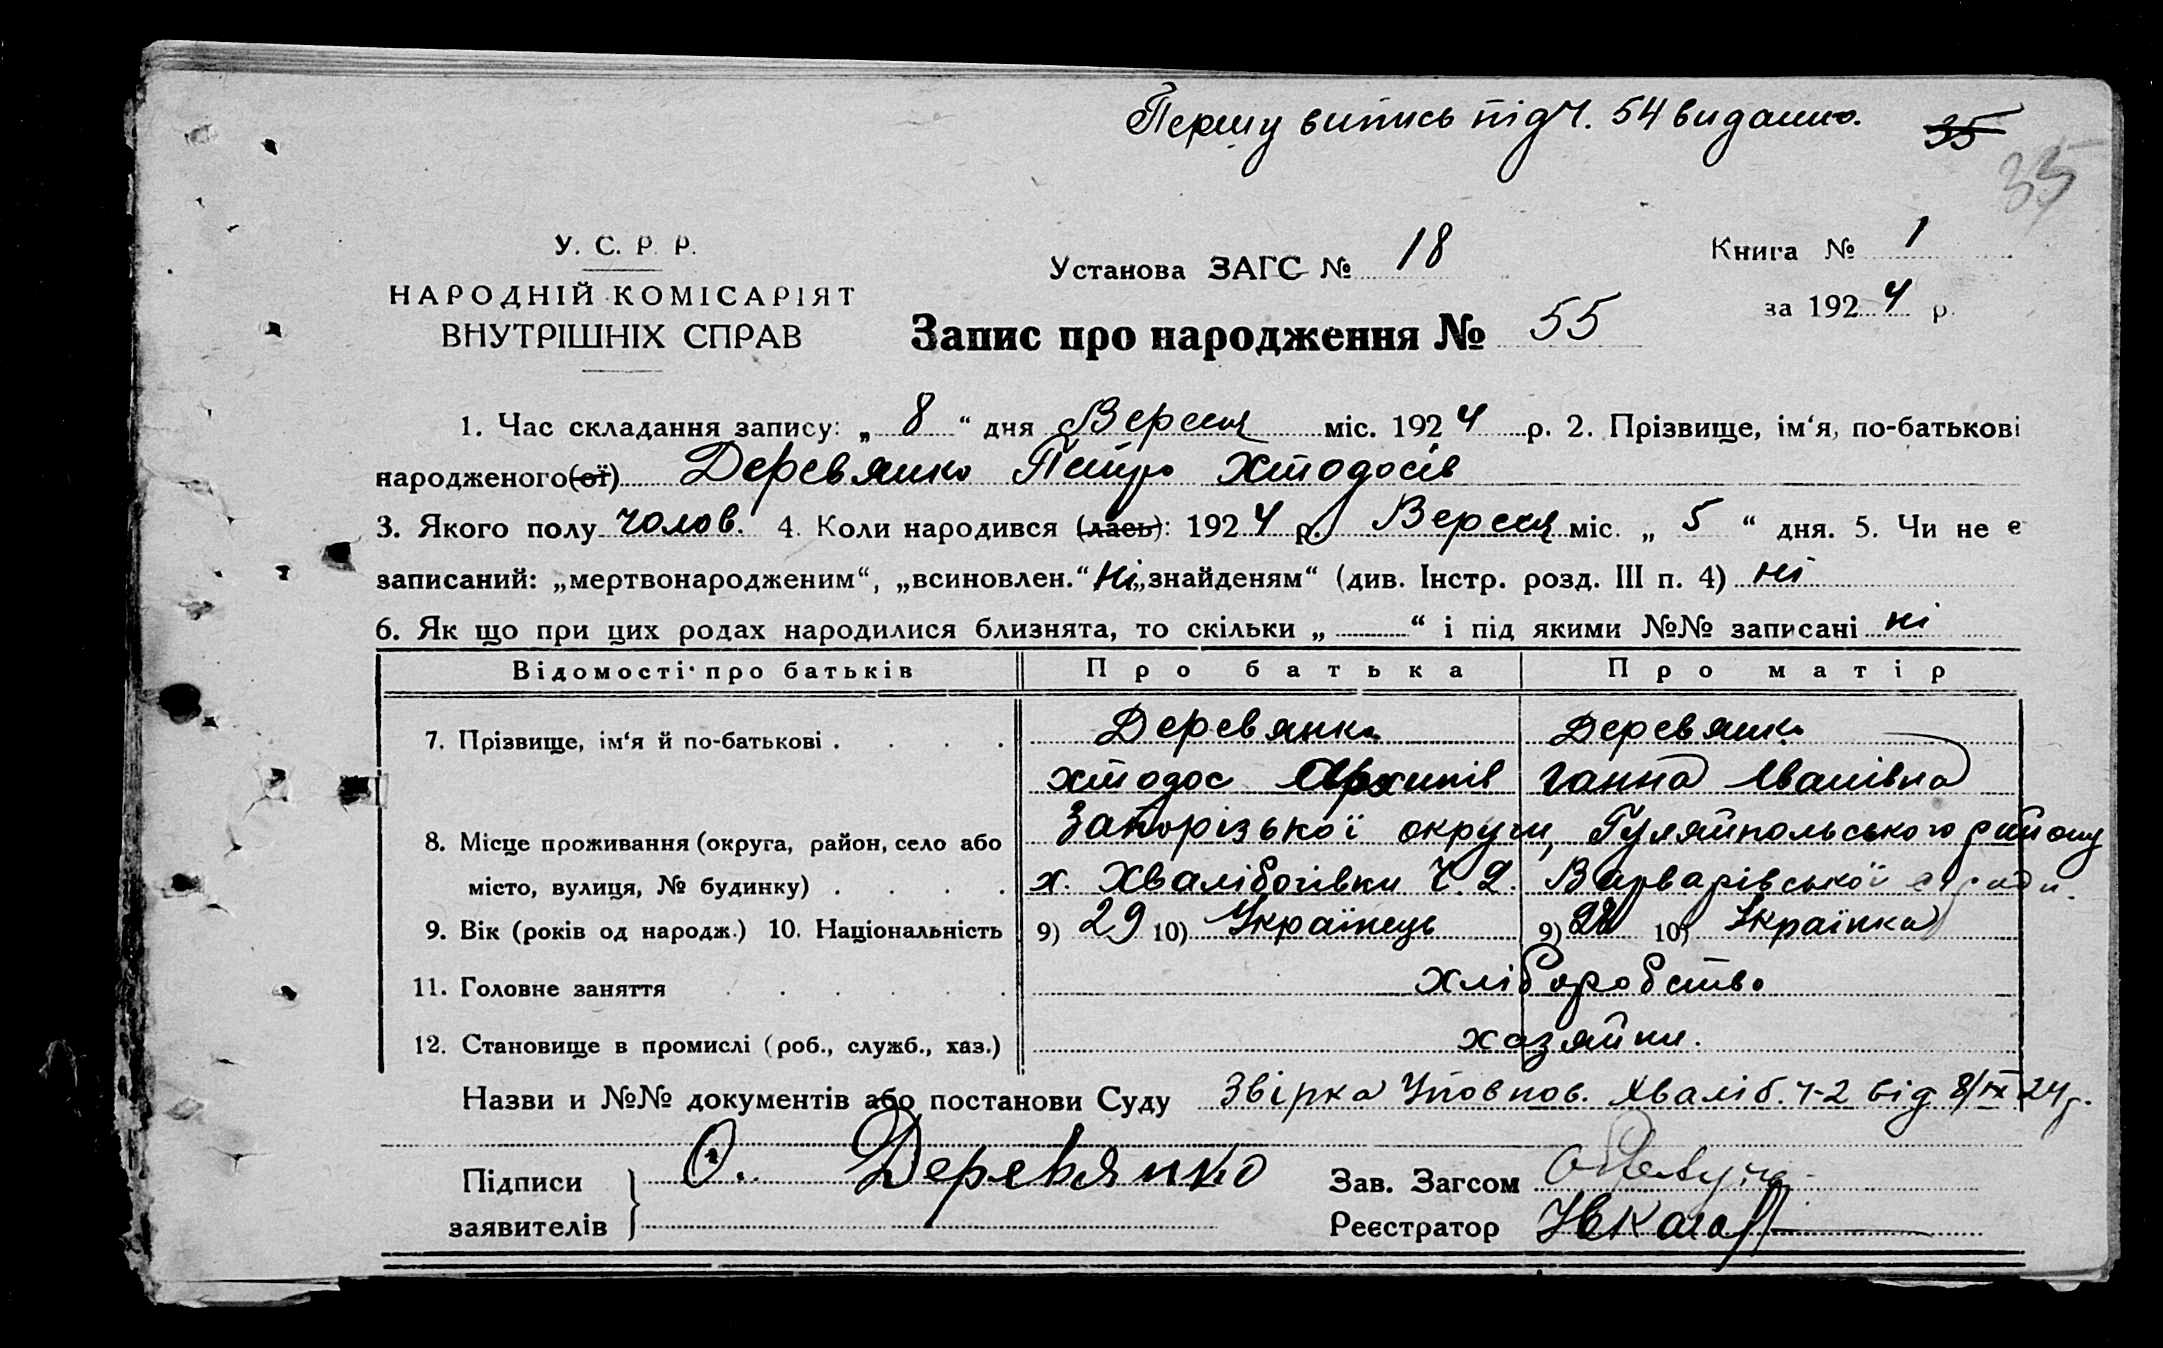 Першу випись під ч. 54 видано.
35
35
У. С. Р. Р.
НАРОДНІЙ КОМІСАРІЯТ
ВНУТРІШНІХ СПРАВ
Установа ЗАГС № 18
Книга № 1
за 1924 р.
Запис про народження № 55
1. Час складання запису: „ 8 “ дня Вересня міс. 1924 р. 2. Прізвище, ім‘я, по-батькові
народженого(ої) Деревянко Петро Хтодосів
3. Якого полу чолов. 4. Коли народився (лась): 1924 р. Вересня міс. „ 5 “ дня. 5. Чи не є
записаний: „мертвонародженим“, „всиновлен.“ Ні „знайденям“ (див. Інстр. розд. III п. 4) ні
6. Як що при цих родах народилися близнята, то скільки „ “ і під якими №№ записані ні
Відомості про батьків Про батька Про матір
7. Прізвище, ім‘я й по-батькові Деревянко Деревянко
Хтодос Архипів Ганна Іванівна
8. Місце проживання (округа, район, село або Запорізької округи, Гуляйпольського району
місто, вулиця, № будинку) х. Хвалібогівки Ч. 2. Варварівської с ради.
9. Вік (років од народж.) 10. Національність 9) 29 10) Українець 9) 28 10) Українка
11. Головне заняття хліборобство
12. Становище в промислі (роб., служб., хаз.) хазяйни.
Назви и №№ документів або постанови Суду Звірка Уповнов. Хваліб. ч-2 від 8/IX 24 р.
Підписи О. Деревянко Зав. Загсом
заявителів Реєстратор